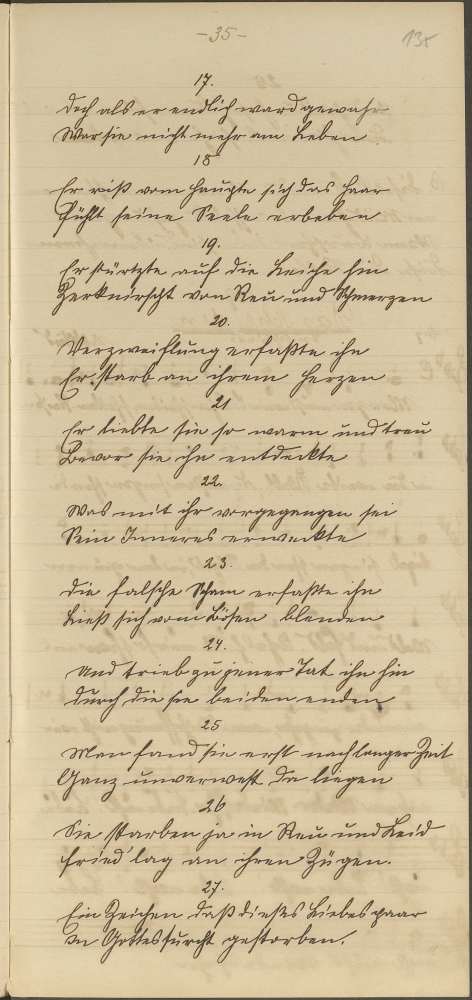 -35-
135
17.
Doch als er endlich ward gewahr
War sie nicht mehr am Leben
18
Er riß vom Haupte sich das Haar
Fühlt seine Seele erbeben
19.
Er stürtzte auf die Leiche hin
Zerknirscht von Reu und Schmerzen
20.
Verzweiflung erfaßte ihn
Er starb an ihrem Herzen
21
Er liebte sie so warm und treu
Bevor sie ihn entdeckte
22.
Was mit ihr vorgegangen sei
Sein Inneres erweckte
23.
Die falsche Scham erfaßte ihn
Ließ sich vom Bösen blenden
24.
Und trieb zu jener Tat ihn hin
Durch die sie beiden enden
25
Man fand sie erst nach langer Zeit
Ganz unverwest da liegen
26
Sie starben ja in Reu und Leid
Fried' lag an ihren Zügen.
27.
Ein Zeichen daß dießes Liebespaar
In Gottesfurcht gestorben.